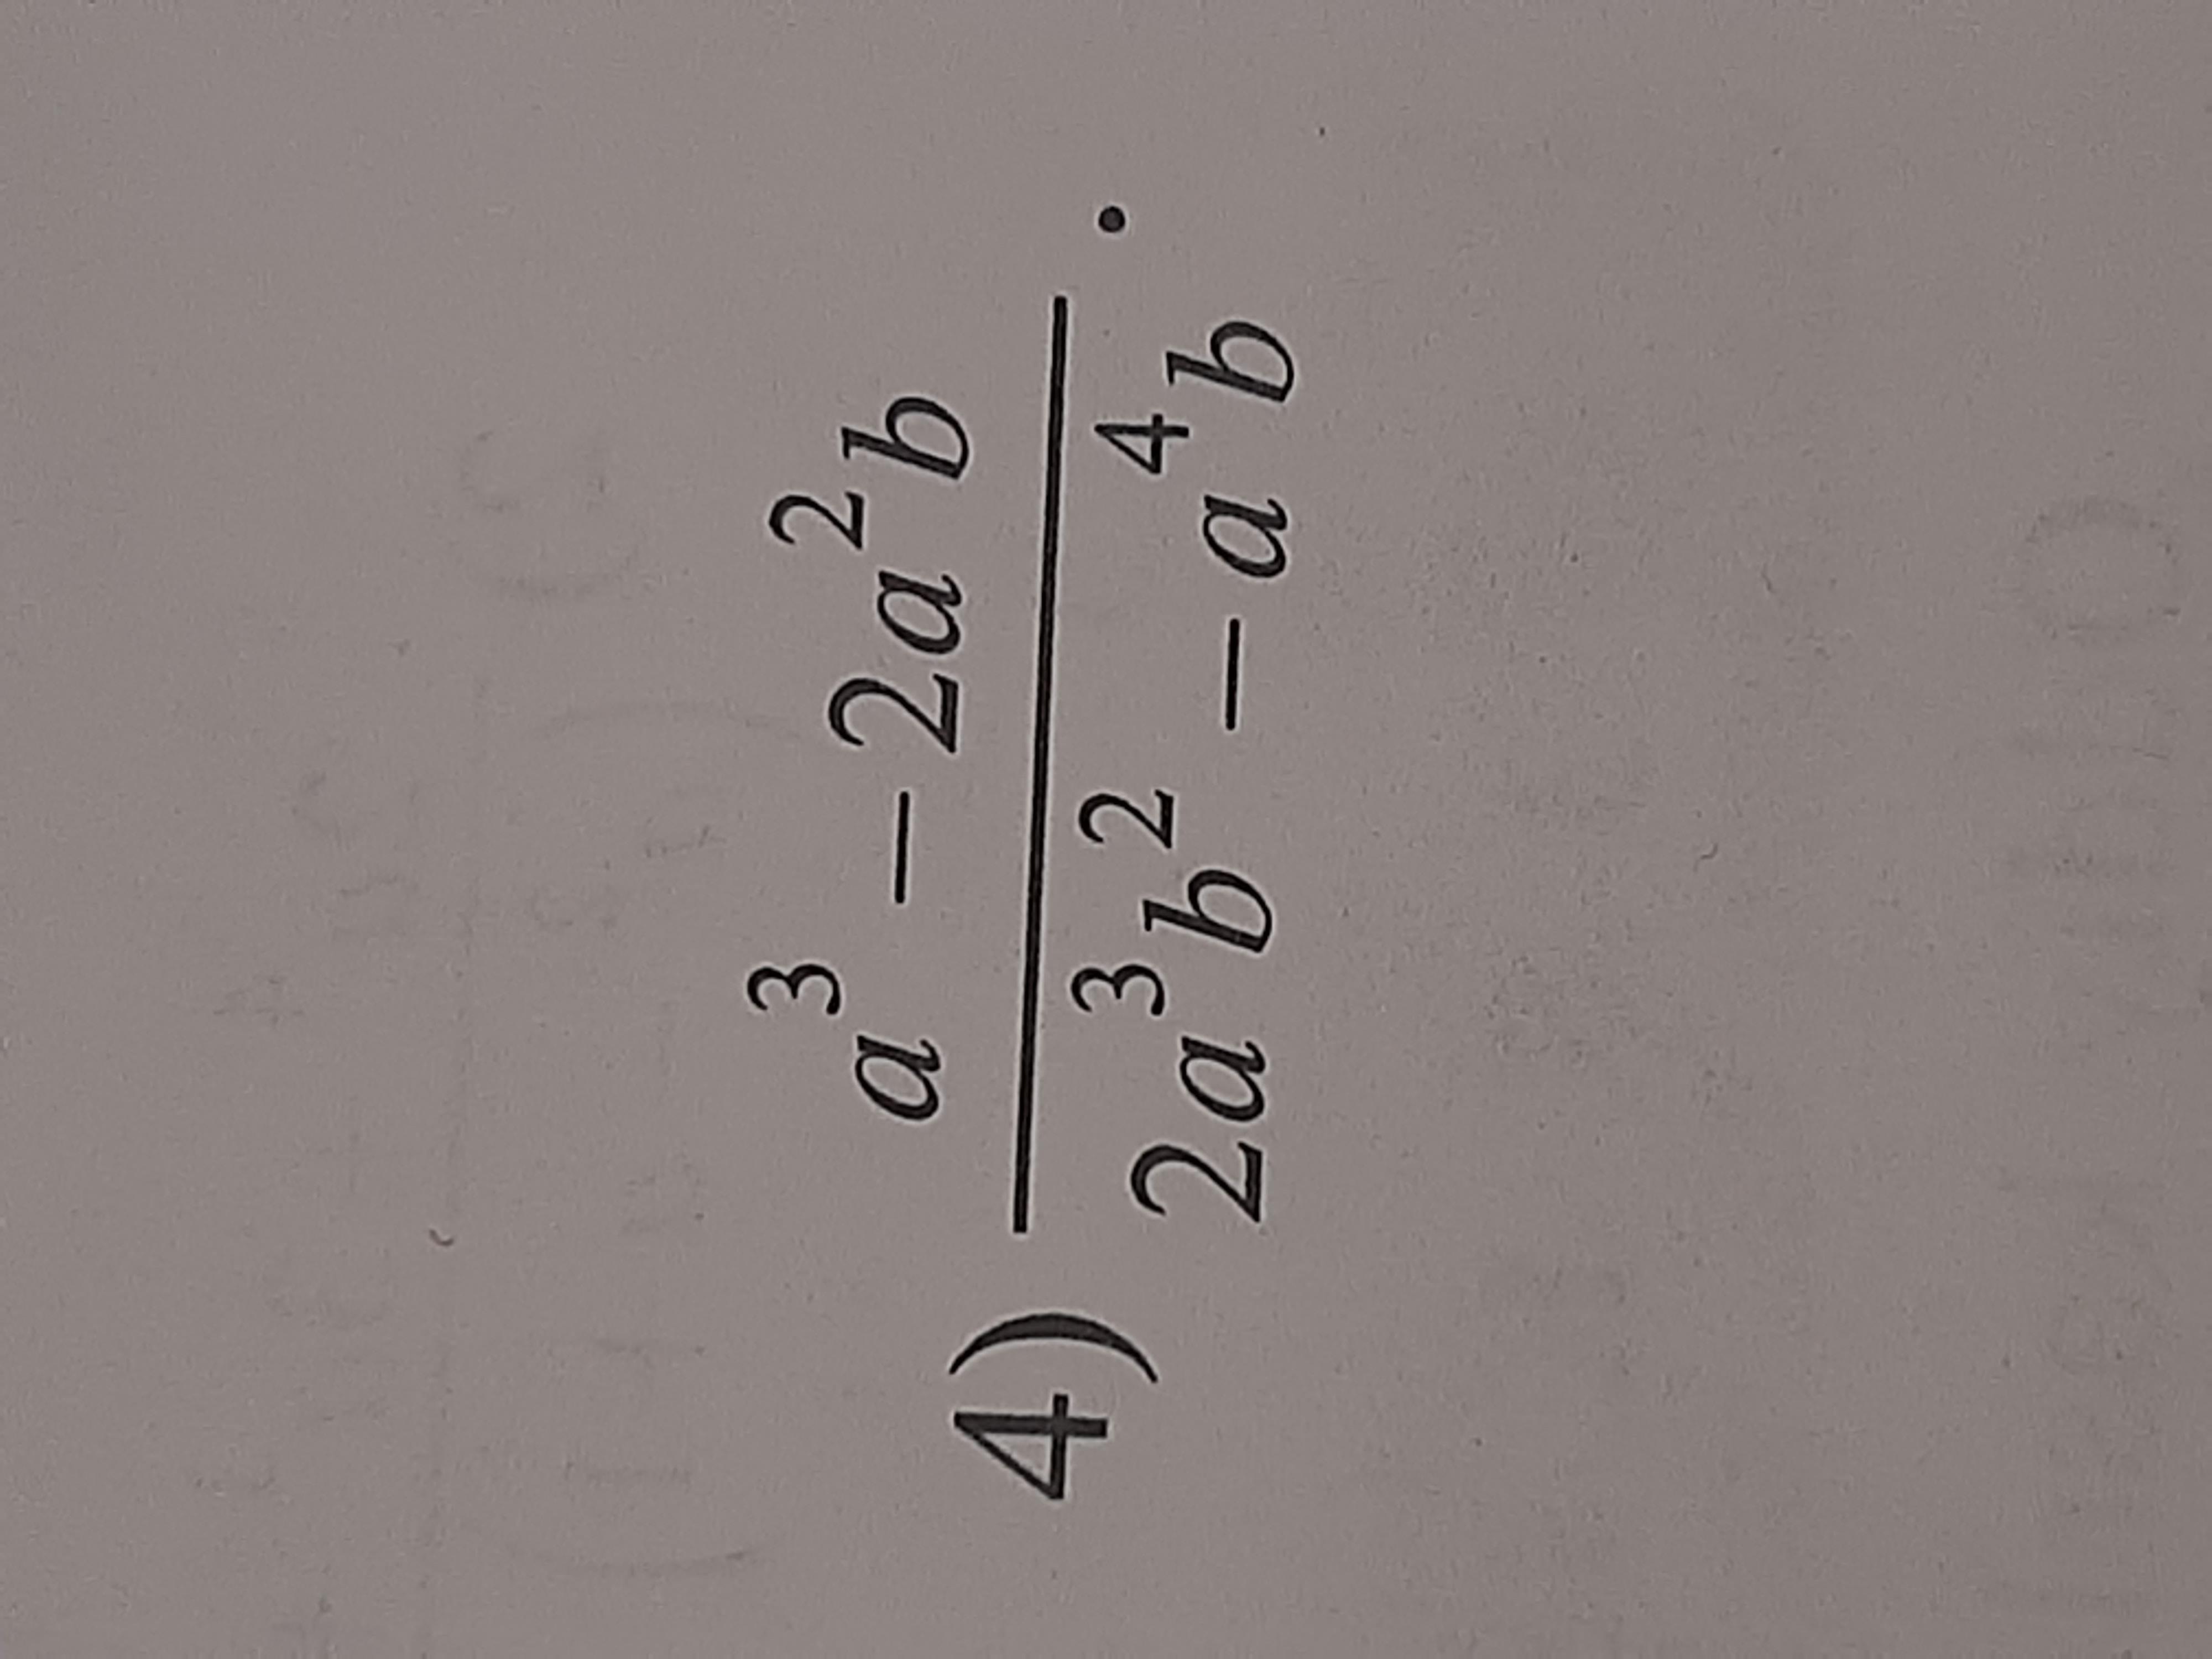 4) \frac{a^3 - 2a^2b}{2a^3b^2 - a^4b}.